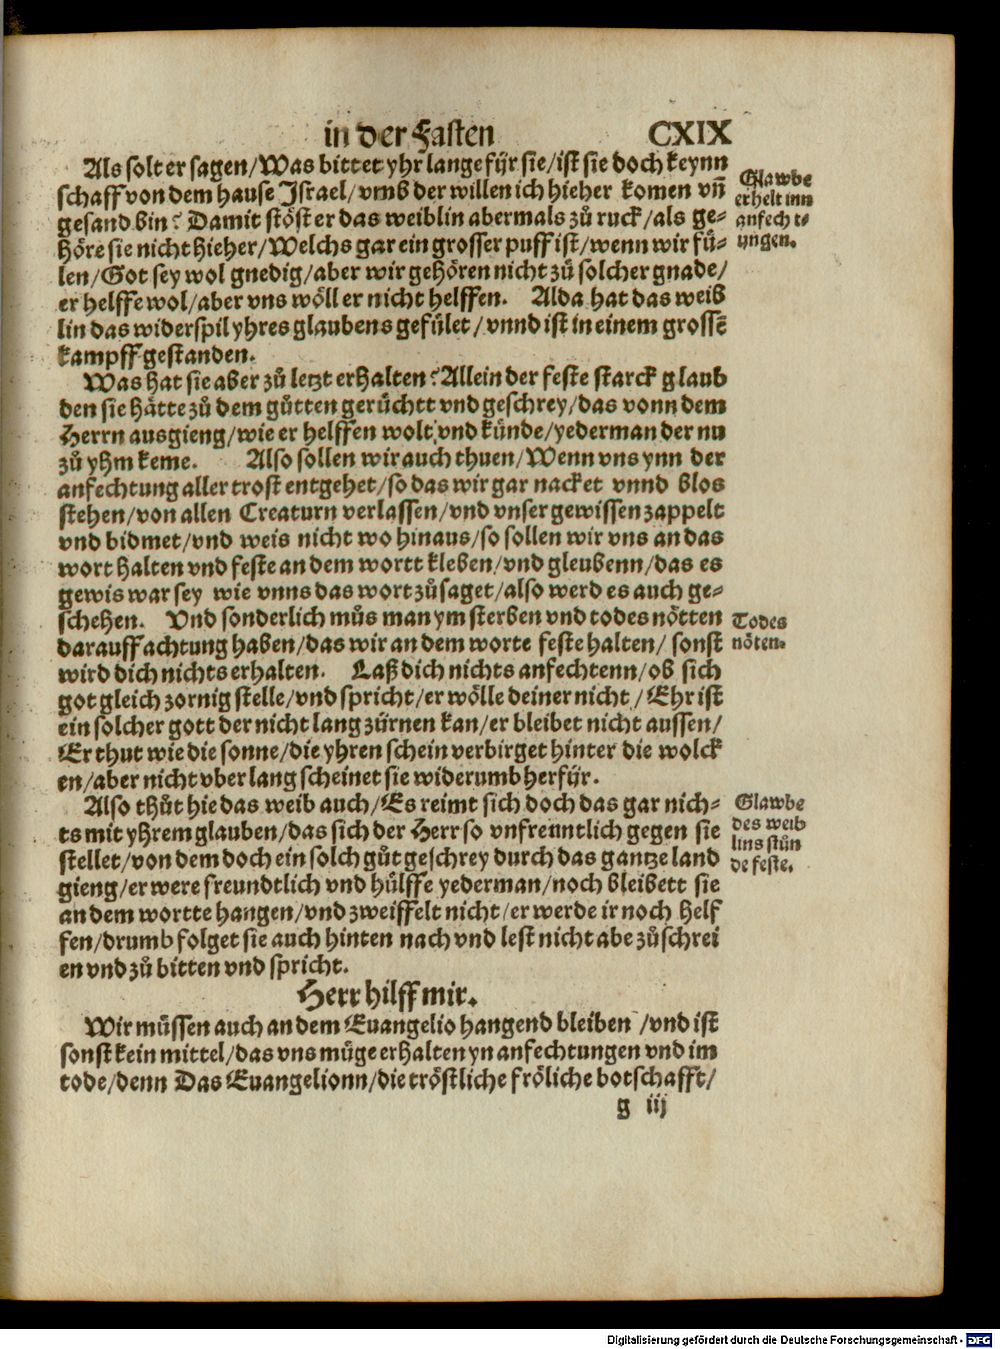 in der Fasten CXIX
Als solt er sagen/Was bittet yhr lange fÿr sie/ist sie doch keynn
schaff von dem hause Israel/vmb der willen ich hieher komen vn̄
gesand bin? Damit stöst er das weiblin abermals zů ruck/als ge⸗
höre sie nicht hieher/Welchs gar ein grosser puff ist/wenn wir fů⸗
len/Got sey wol gnedig/aber wir gehören nicht zů solcher gnade/
er helffe wol/aber vns wöll er nicht helffen. Alda hat das weib
lin das widerspil yhres glaubens gefület/vnnd ist in einem grossē
kampff gestanden.
Glawbe
erhelt inn
anfechte
ungen.
Was hat sie aber zů letzt erhalten? Allein der feste starck glaub
den sie hätte zů dem gůtten gerüchtt vnd geschrey/das vonn dem
Herrn ausgieng/wie er helffen wolt vnd künde/yederman der nu
zů yhm keme. Also sollen wir auch thuen/Wenn vns ynn der
anfechtung aller trost entgehet/so das wir gar nacket vnnd blos
stehen/von allen Creaturn verlassen/vnd vnser gewissen zappelt
vnd bidmet/vnd weis nicht wo hinaus/so sollen wir vns an das
wort halten vnd feste an dem wortt kleben/vnd gleubenn/das es
gewis war sey wie vnns das wort zůsaget/also werd es auch ge⸗
schehen. Vnd sonderlich můs man ym sterben vnd todes nötten
darauff achtung haben/das wir an dem worte feste halten/ sonst
wird dich nichts erhalten. Laß dich nichts anfechtenn/ob sich
got gleich zornig stelle/vnd spricht/er wölle deiner nicht/Ehr ist
ein solcher gott der nicht lang zürnen kan/er bleibet nicht aussen/
Er thut wie die sonne/die yhren schein verbirget hinter die wolck
en/aber nicht vber lang scheinet sie widerumb herfÿr.
Todes
nöten.
Also thůt hie das weib auch/Es reimt sich doch das gar nich⸗
ts mit yhrem glauben/das sich der Herr so vnfrenntlich gegen sie
stellet/von dem doch ein solch gůt geschrey durch das gantze land
gieng/er were freundtlich vnd hülffe yederman/noch bleibett sie
an dem wortte hangen/vnd zweiffelt nicht/er werde ir noch helf
fen/drumb folget sie auch hinten nach vnd lest nicht abe zů schrei
en vnd zů bitten vnd spricht.
Glawbe
des weib
lins stůn
de feste.
Herr hilff mir.
Wir müssen auch an dem Euangelio hangend bleiben/vnd ist
sonst kein mittel/das vns müge erhalten yn anfechtungen vnd im
tode/denn Das Euangelionn/die tröstliche fröliche botschafft/
g iij
Digitalisierung gefördert durch die Deutsche Forschungsgemeinschaft - DFG